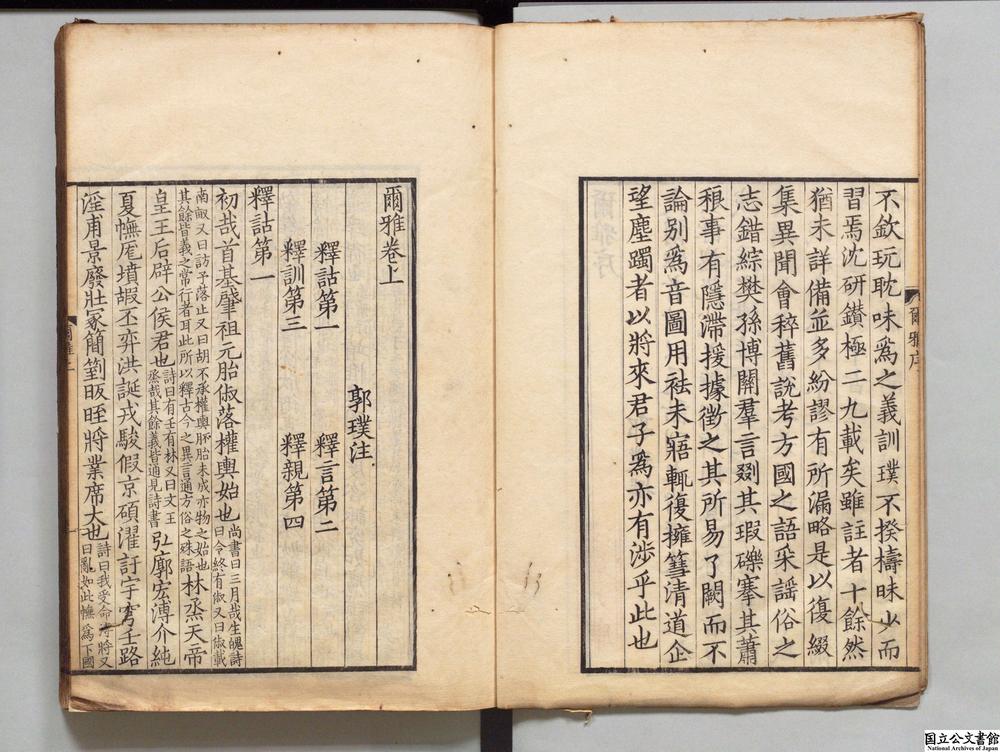 不欽玩耽味爲之義訓璞不揆檮昧少而
習焉沈研鑽極二九載矣雖註者十餘然
猶未詳備並多紛謬有所漏略是以復綴
集異聞會稡舊說考方國之語采謠俗之
志錯綜樊孫博關羣言剟其瑕礫搴其蕭
稂事有隱滯援據徵之其所易了闕而不
論別爲音圖用袪未寤輒復擁篲清道企
望塵躅者以將來君子爲亦有涉乎此也
爾雅序
爾雅卷上
郭璞注
釋詁第一 釋言第二
釋訓第三 釋親第四
釋詁第一
初哉首基肇祖元胎俶落權輿始也尚書曰三月哉生魄詩曰令終有俶又曰俶載
南畝又曰訪予落止又曰胡不承權輿胚胎未成亦物之始也其餘皆義之常行者耳此所以釋古今之異言通方俗之殊語林烝天帝
皇王后辟公侯君也詩曰有壬有林又曰文王烝哉其餘義皆通見詩書弘廓宏溥介純
夏幠厖墳嘏丕弈洪誕戎駿假京碩濯訏宇穹壬路
淫甫景廢壯冢簡箌昄晊將業席大也詩曰我受命溥將又曰亂如此幠爲下國
爾雅上
国立公文書館
National Archives of Japan